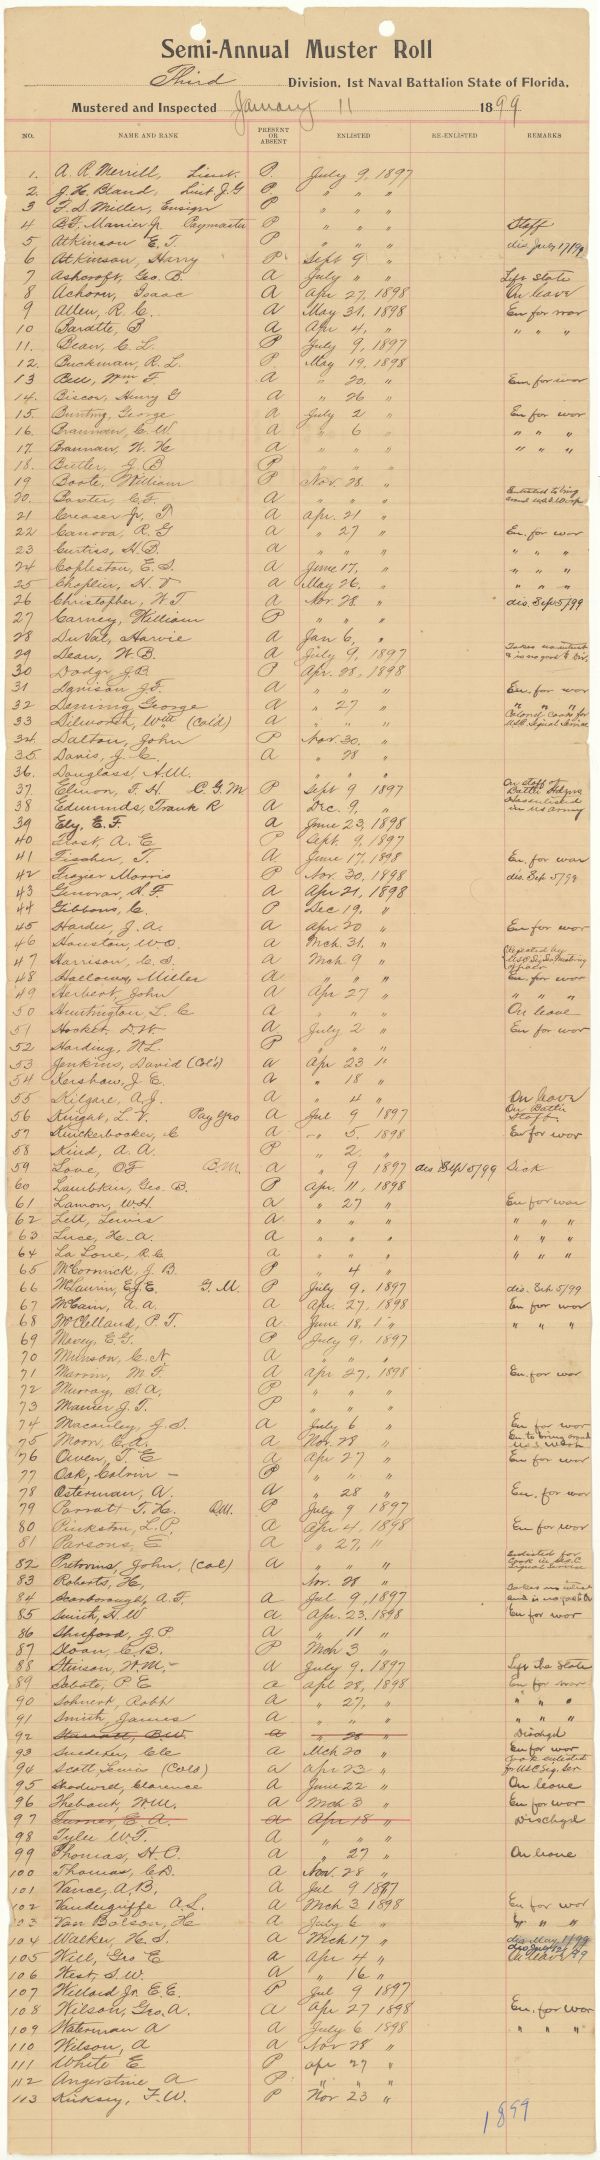 Semi-Annual Muster Roll
Third Division, 1st Naval Battalion State of Florida.
Mustered and Inspected January 11 1899
NO. NAME AND RANK PRESENT OR ABSENT ENLISTED RE-ENLISTED REMARKS
1. A. R. Merrill, Lieut. P. July 9, 1897
2. J. H. Bland, Lieut J.G P. " " "
3 F. D. Miller, Ensign P " " "
4 B.F. Manier Jr. Paymaster P " " " Staff
5. Atkinson E. T. P " " " dis July 17/99
6 Atkinson, Harry P Sept 9 "
7 Ashcroft, Geo. B. A July " " Left State
8 Achorn, Isaac A Apr 27, 1898 On leave
9 Allen, R. C. A May 31, 1898 En for war
10 Bardtte, B A Apr 4, " " " "
11. Bean, C. L. P July 9, 1897
12. Buckman, R. L. P May 19, 1898
13 Bell, Wm F. A " 20. " En. for war
14. Biscoe, Henry G A " 26 "
15. Bunting, George A July 2 " En for war
16. Brannan, C. W A " 6 " " " "
17. Brannan, W. H A " " " " " "
18. Butler, J. B P " " "
19 Boote, William P Nov. 28 "
20. Baxter, C. F. A " " " Enlisted to bring
21 Creaser Jr, T A Apr. 21 "
22 Canova, R. G A " 27 " En. for war
23 Curtiss, H. B. A " " " " " "
24 Copleston, E. S. A June 17, " " " "
25 Chaplin, H. V A May 26. " " " "
26 Christopher, W. J A Nov. 28 " dis. Sep 5/99
27 Carney, William P " " "
28 DuVal, Harvie A Jan 6, "
29 Dean, W. B. A July 9, 1897
30 Dodge J.B. P Apr. 28, 1898
31 Davison J. F. A " " " En. for war
32 Deming, George A " 27 " " " "
33 Dilworth, Will (Col'd) A " " " Colored Cook for U.S.V. Signal Service
34 Dalton, John P Nov. 30. "
35. Davis, J. C. A " 28 "
36. Douglass, H.M. " " "
37. Elinon, F. H. C. G. M P Sept 9 1897 On staff of Battln
38 Edmunds, Frank R A Dec. 9, " Has enlisted in US Army
39 Ely, E. F. A June 23, 1898
40 Frost, A. E P Sept. 9, 1897
41 Fischer, T. A June 17, 1898 En. for war
42 Frazier Morris P Nov. 30, 1898 dis. Sep 5/99
43 Genovar, H. F. A Apr 21, 1898
44 Gibbons, C. P Dec 19. "
45 Hardee, J. A. A Apr. 20 " En for war
46 Houston, W.O. A Mch. 31. "
47 Harrison, C. S. A Mch 9 "
48 Halloway, Miller A " " " En. for war
49 Herbert, John A Apr 27 " " " "
50 Huntington, L. C A " " " On leave
51 Hooker, D. W A July 2 " En for war
52 Harding, W.L. P " " "
53 Jenkins, David (Col'd) A Apr 23 "
54 Kershaw, J. E. A " 18 "
55 Kilgare, A. J. A " 4 " On leave
56 Knight, L. V. Pay Yeo A Jul 9 1897 On Battln Staff
57 Knickerbocker, C A " 5. 1898 En for war
58 Kind, A. A. P " 2. "
59 Love, O F B.M. A " 9 1897 dis Sept 5/99 Sick
60 Lambkin, Geo. B. P Apr. 11, 1898
61 Lamon, W.H. A " 27 " En for war
62 Lell, Lewis A " " " " " "
63 Luse, H. A. A " " " " " "
64 La Lone, R. C. A " " " " " "
65 McCormick, J. B. P " 4 "
66 McLaurin, E.J.E. G. M. P July 9, 1897 dis. Sep 5/99
67 McCain, A. A. A Apr. 27, 1898 En for war
68 McClelland, P. T. A June 18, " " " "
69 Maxey, E.G. P July 9, 1897
70 Munson, C. N A " " "
71 Marvin, M. F. A Apr 27, 1898 En. for war
72 Murray, S. A, P " " "
73 Manier J. T. P " " "
74 Macauley, J. S. A July 6 " En for war
75 Moon, C. A. A Nov. 28 "
76 Owen, T. E A Apr 27 " En for war
77 Oak, Calvin P " " "
78 Osterman, A. A " 28 " En. for war
79 Parrott T. H. QM. P July 9 1897
80 Pinkston, L. P, A Apr 4, 1898 En for war
81 Parsons, E A " 27, "
82 Pretorius, John, (Col) A " " " Enlisted for Cook in U.S.C. Signal Service
83 Roberts, H, Nov. 28 "
84 Scarborough, A. F. A Jul 9, 1897
85 Smith, H. W A Apr. 23, 1898 En for war
86 Shuford, J. P. A " 11 "
87 Sloan, C. B. P Mch 3 "
88 Stinson, W. M. A July 9, 1897 Left the State
89 Sabate, P E A Apl 28, 1898 En for war
90 Sohnert, Robt A " 27, " " " "
91 Smith James A " " " " " "
92 B.W. A " 28 " Dischgd
93 Suederer, Cle A Mch 20 " En for war
94 Scott, Lewis (Cold) A Apr 23 " Cook enlisted for U.S.C. Sig. Ser
95 Shadwell, Clarence A June 22 " On leave
96 Thebaut, W.M. A Mch 3 " En for war
97 Turner, E. A. A Apr 18 " Dischgd
98 Tylee W. F. A " " "
99 Thomas, H. C. A " 27 " On leave
100 Thomas, C.D. A Nov. 28 "
101 Vance, A. B. A Jul 9 1897
102 Vandergriffe A. L. A Mch 3 1898 En for war
103 Van Bolson, H A July 6 " " " "
104 Walker, H. S. A Mch 17 " dis May 1/99
105 Will, Geo E A Apr 4 " On leave
106 West, S. W. A " 16 "
107 Willard Jr. E. E. P Jul 9 1897
108 Wilson, Geo. A. A Apr 27 1898 En. for war
109 Waterman A A July 6 1898 " " "
110 Wilson, A A Nov 28 "
111 White E P Apr 27 "
112 Angerstine A P " " "
113 Kirksey, F. W. P Nov 23 "
1899